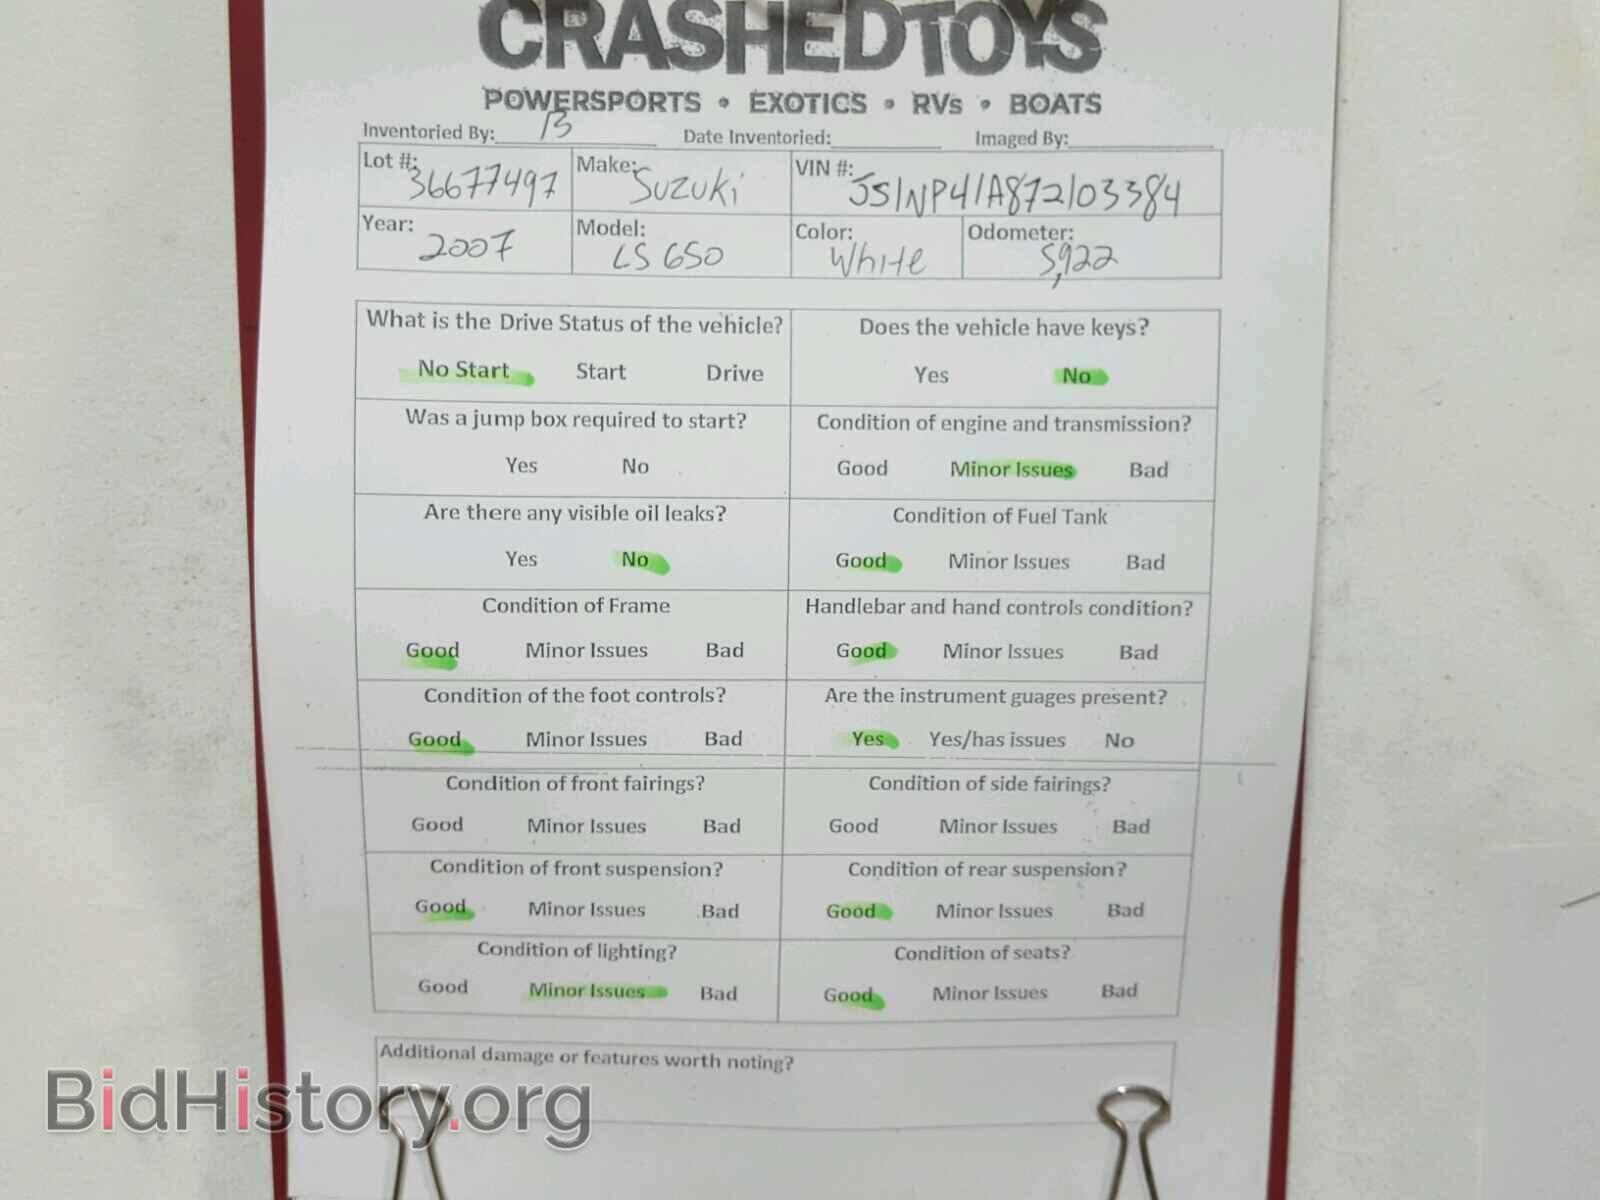 CRASHEDTOYS
POWERSPORTS • EXOTICS • RVs • BOATS
Inventoried By: B Date Inventoried: Imaged By:
Lot #: 36677497 Make: Suzuki VIN #: JS1NP41A872103384
Year: 2007 Model: LS 650 Color: White Odometer: 5,922
What is the Drive Status of the vehicle? Does the vehicle have keys?
No Start Start Drive Yes No
Was a jump box required to start? Condition of engine and transmission?
Yes No Good Minor Issues Bad
Are there any visible oil leaks? Condition of Fuel Tank
Yes No Good Minor Issues Bad
Condition of Frame Handlebar and hand controls condition?
Good Minor Issues Bad Good Minor Issues Bad
Condition of the foot controls? Are the instrument guages present?
Good Minor Issues Bad Yes Yes/has issues No
Condition of front fairings? Condition of side fairings?
Good Minor Issues Bad Good Minor Issues Bad
Condition of front suspension? Condition of rear suspension?
Good Minor Issues Bad Good Minor Issues Bad
Condition of lighting? Condition of seats?
Good Minor Issues Bad Good Minor Issues Bad
Additional damage or features worth noting?
BidHistory.org